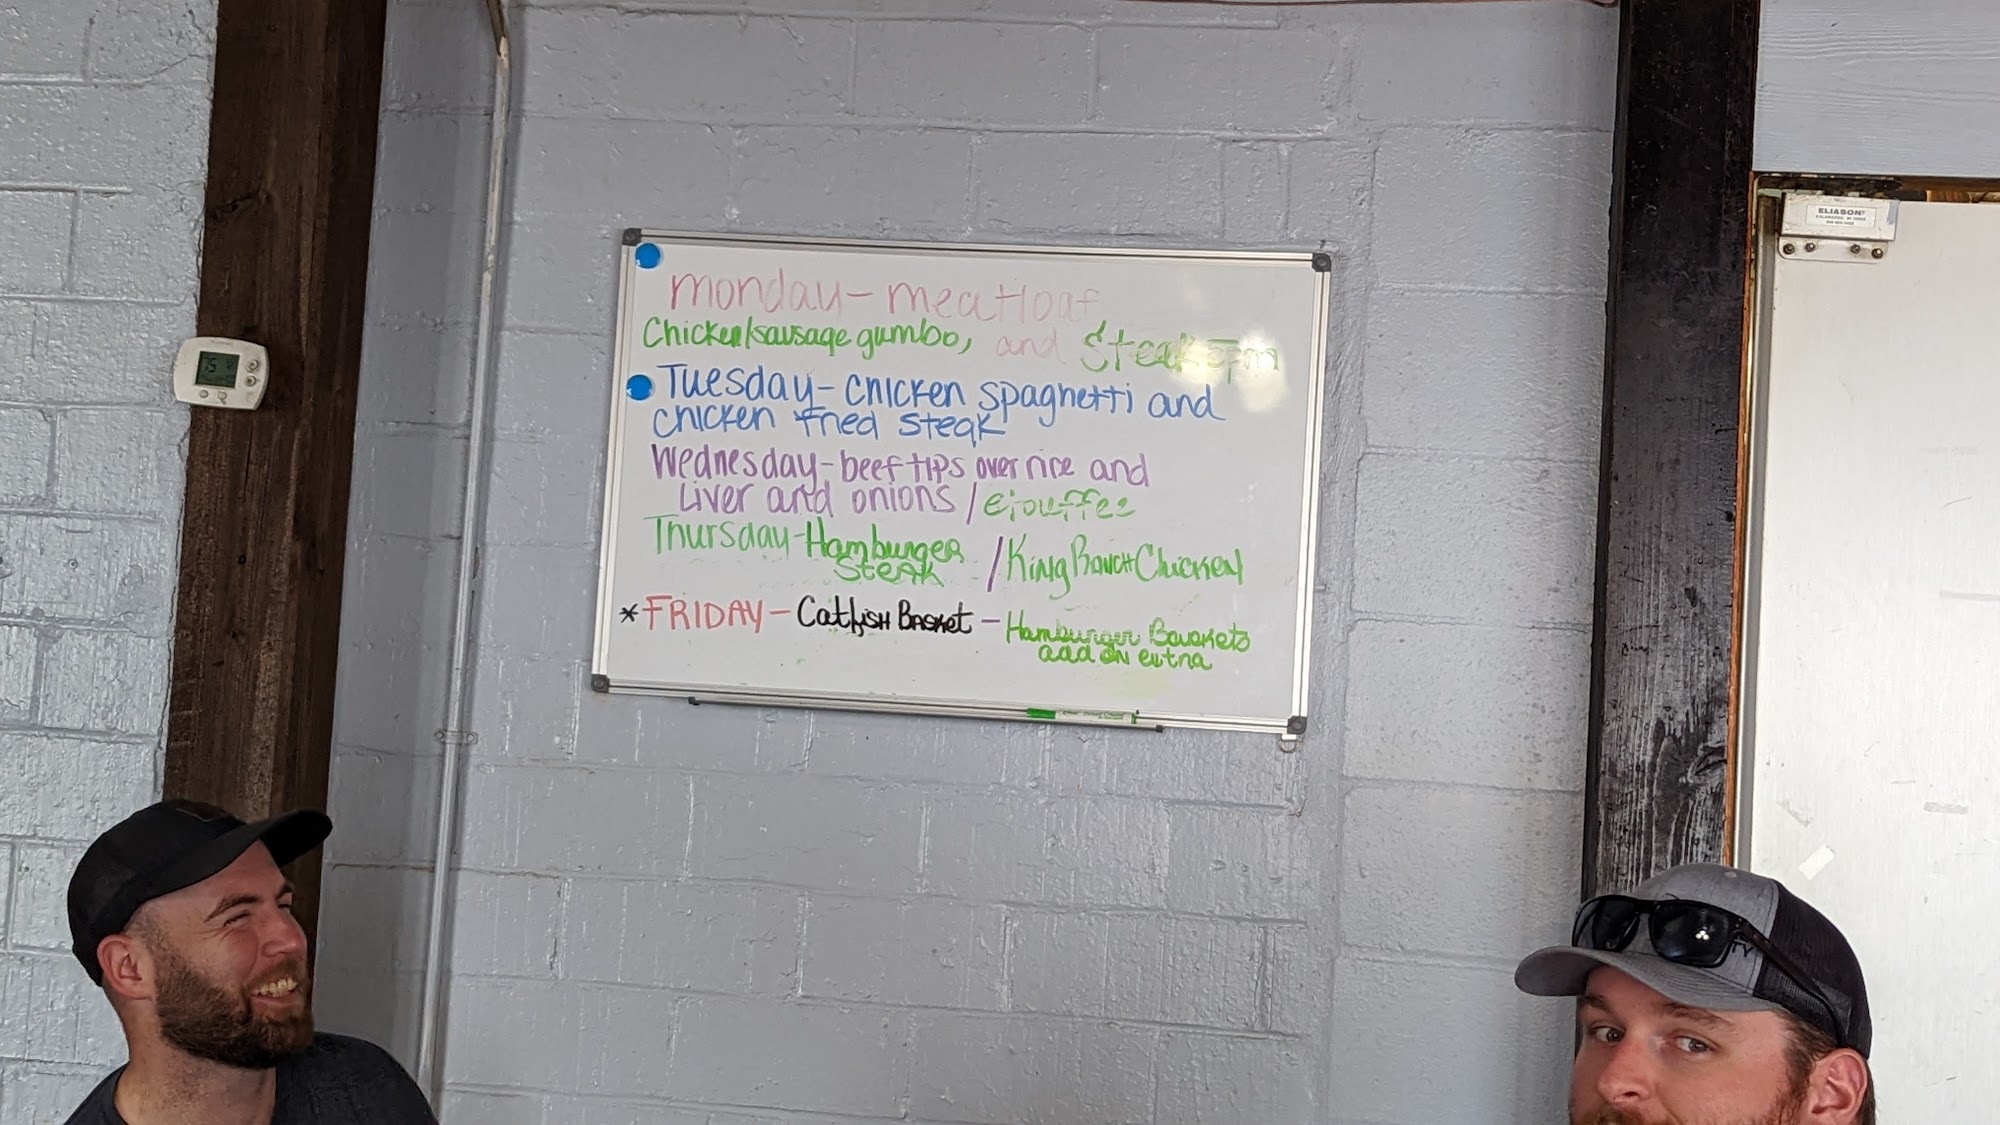 monday - meatloaf
Chicken/sausage gumbo, and Steak 5pm
Tuesday - chicken spaghetti and
chicken fried steak
Wednesday - beef tips over rice and
Liver and onions / ejouffee
Thursday - Hamburger / King Ranch Chicken
Steak
* FRIDAY - Catfish Basket - Hamburger Baskets
add on extra
ELIASON
75